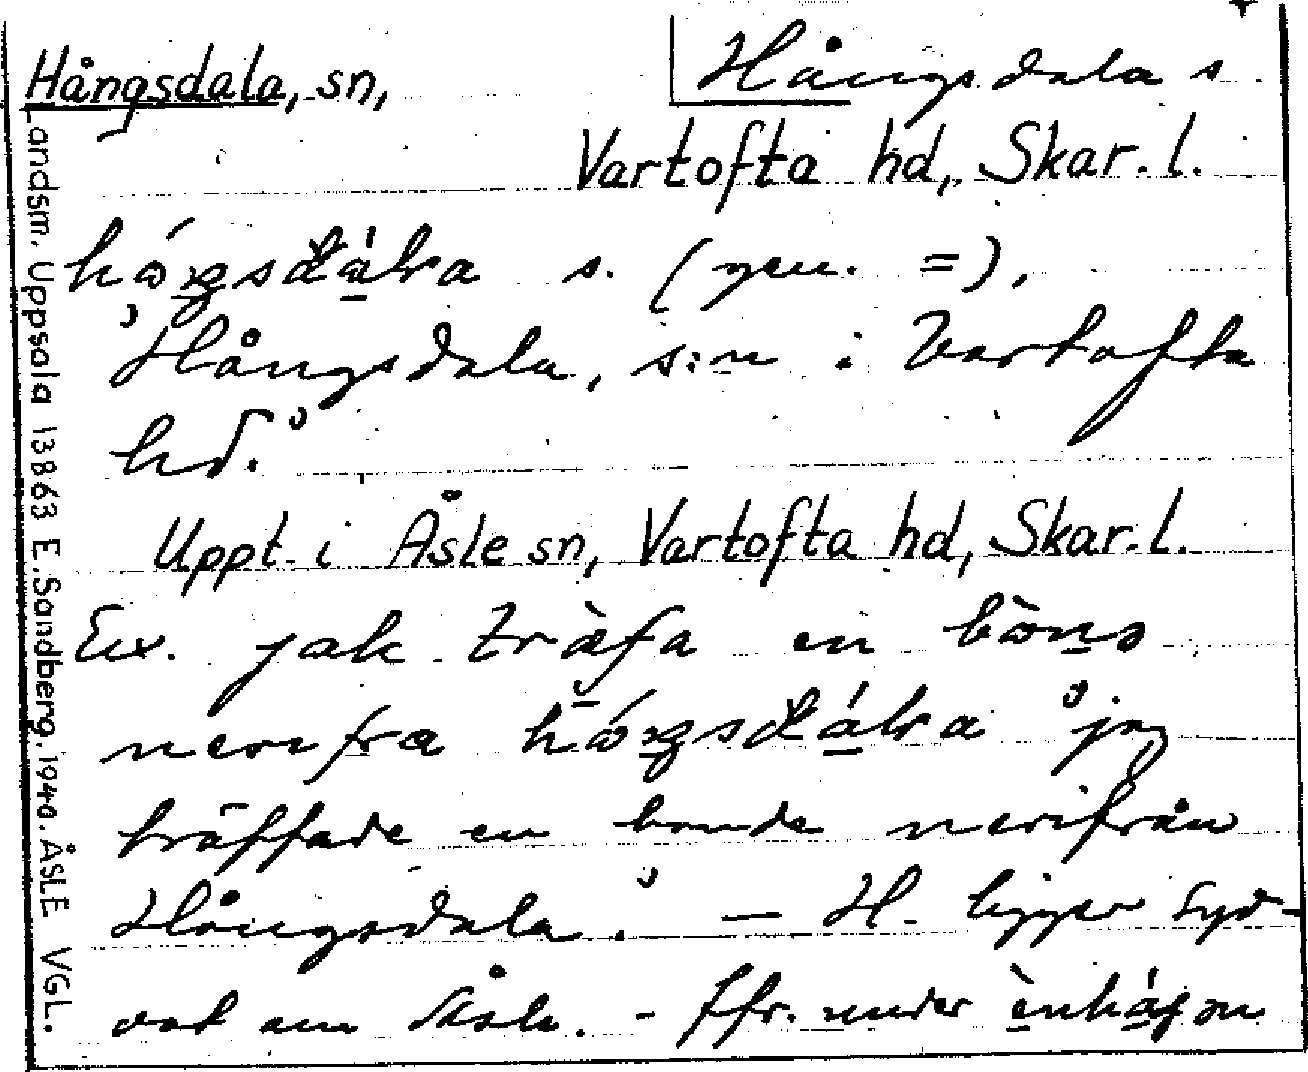 Hångsdala, sn,
Hångsdala s
Vartofta hd, Skar. l.
s. (gen. =),
"Hångsdala, s:n i Vartofta
hd."
Uppt. i Åsle sn, Vartofta hd, Skar. l.
Ex. jak träfa en
"jag
träffade en bonde nerifrån
Hångsdala." — H. ligger syd-
ost om Åsle. - Jfr. under
Landsm. Uppsala 13863 E. Sandberg. 1940. ÅSLE VGL.